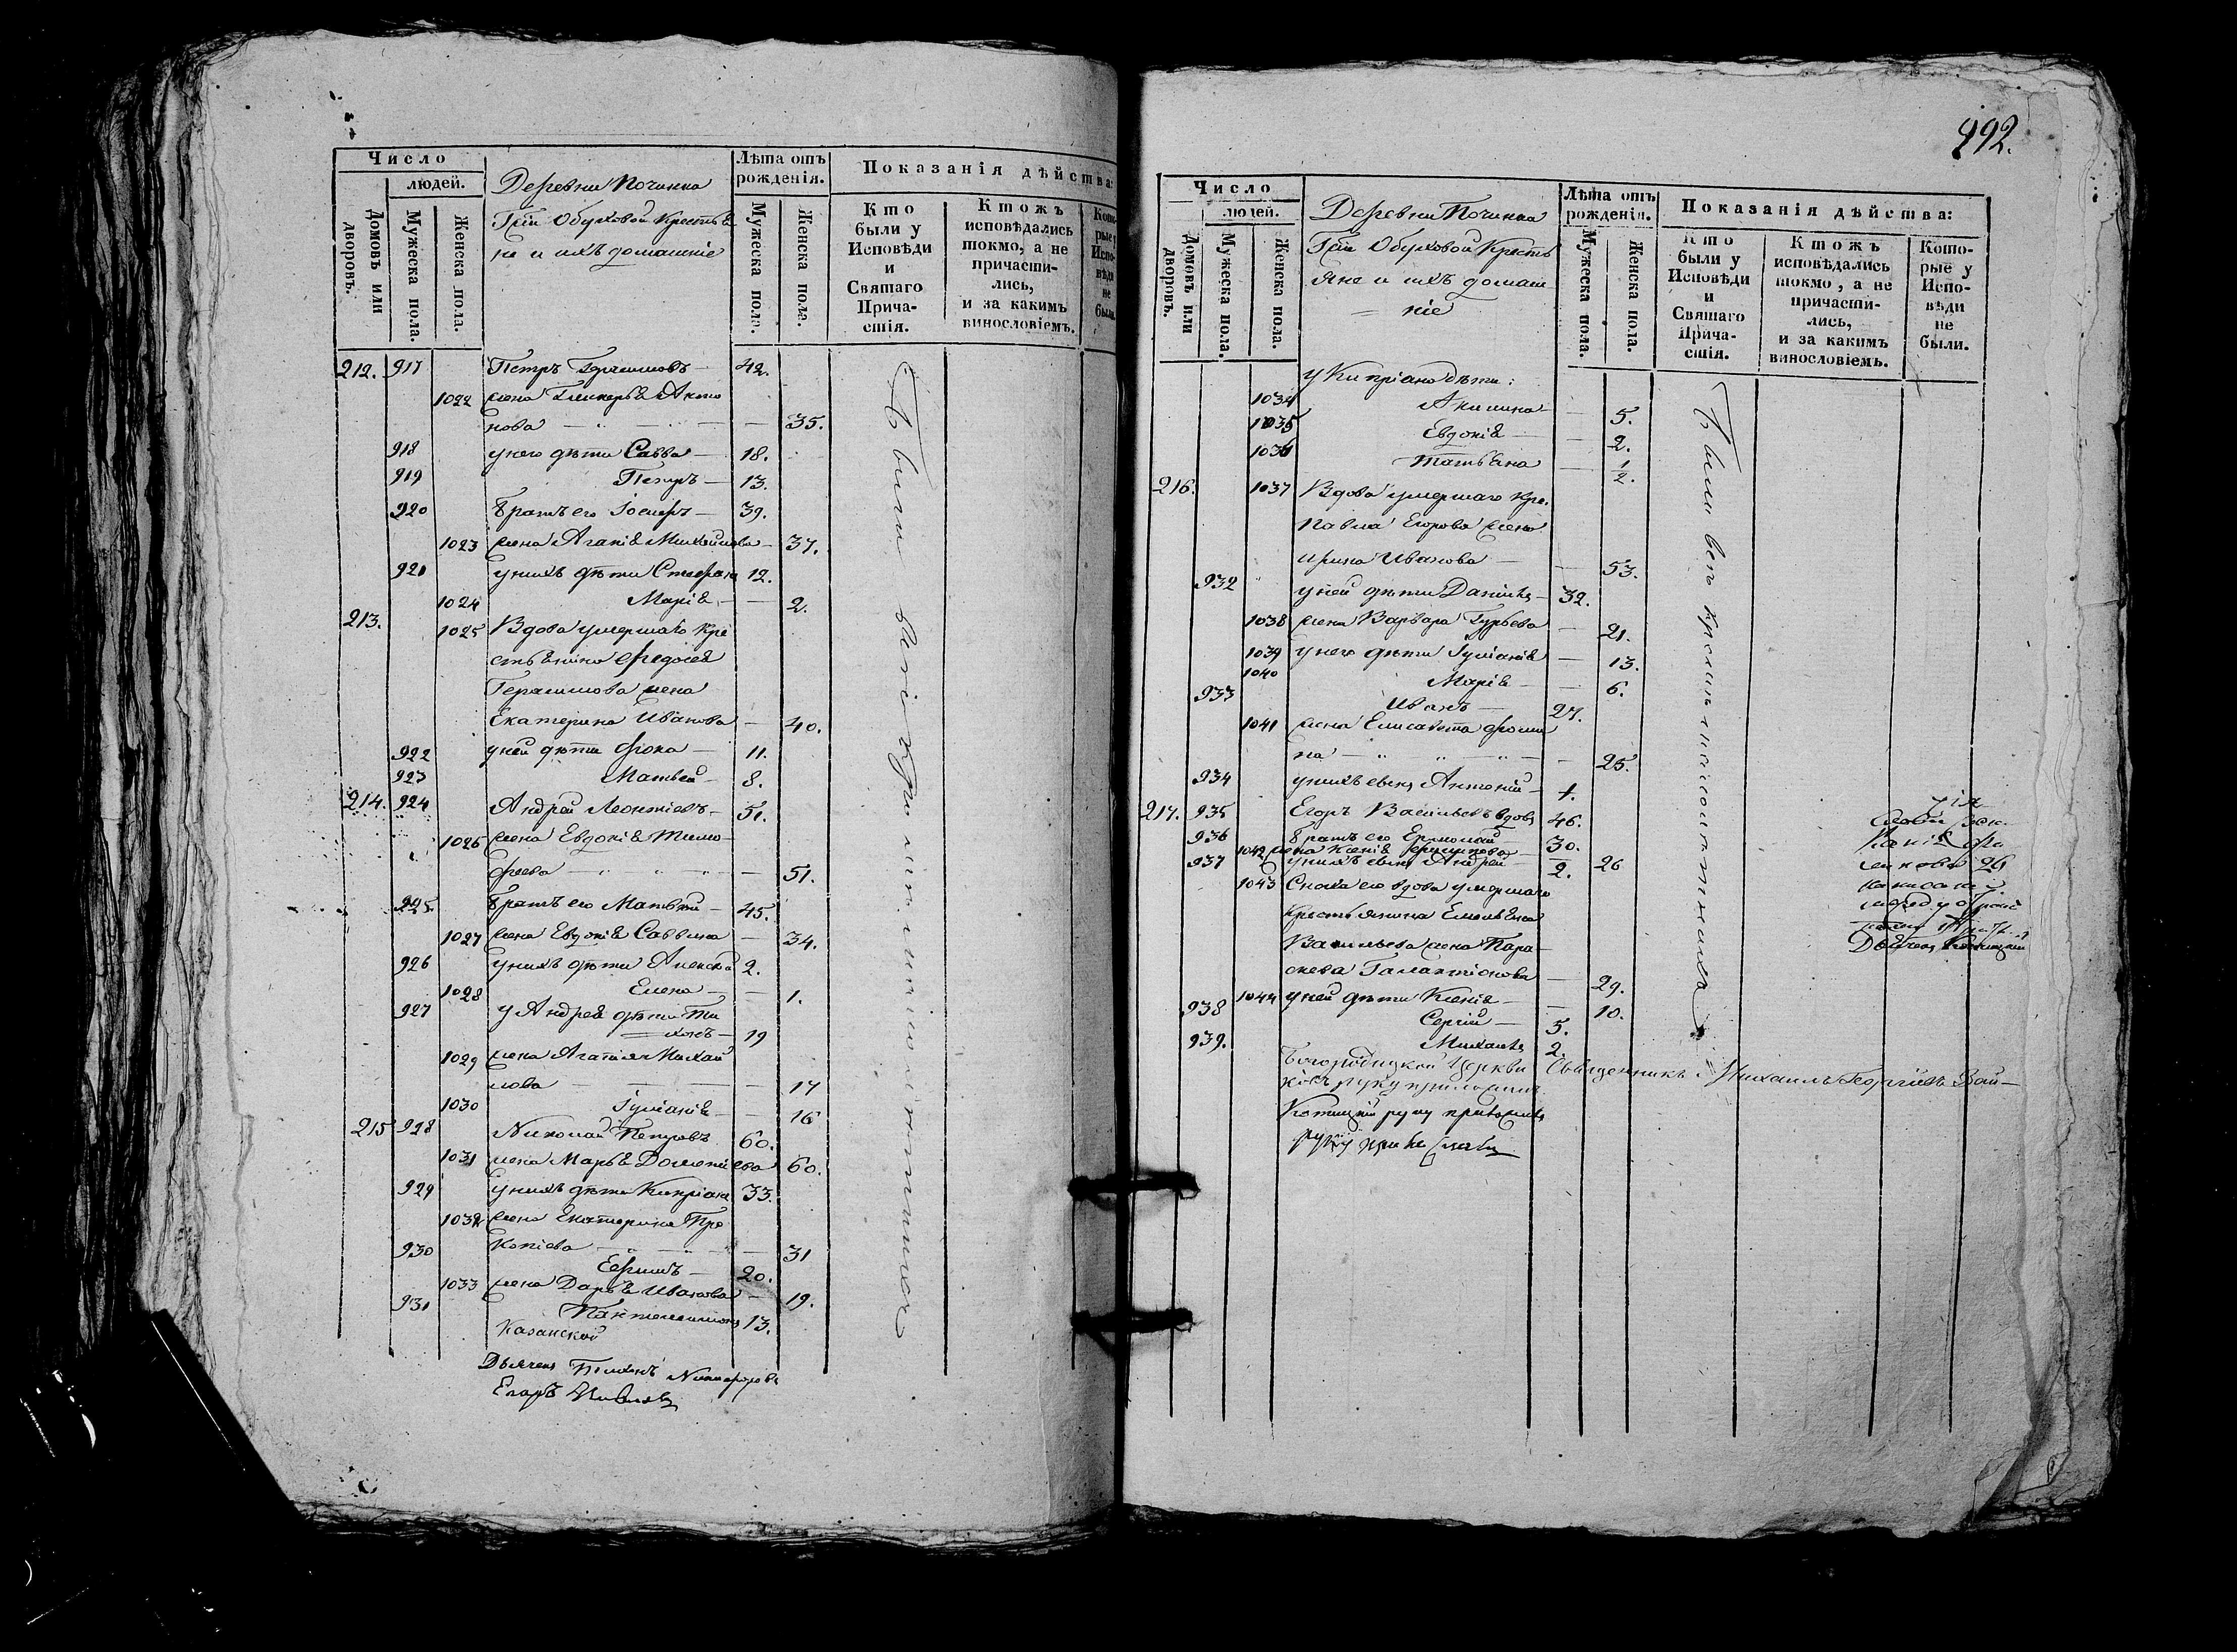 Число
людей.
Домовъ или дворовъ.
Мужеска пола.
Женска пола.
Деревни Починка
Гжи Обуховой Крестья
не и ихъ домашніе
Лѣта отъ рожденія.
Мужеска пола.
Женска пола.
Показанія дѣйства:
Кто были у Исповѣди и Святаго Причастія.
Ктожъ исповѣдались токмо, а не причастились, и за какимъ винословіемъ.
Которые у Исповѣди не были.
212. 917 Петръ Герасимовъ 42.
1022 жена Гликерья Анто
нова 35.
918 у него дѣти Савва 18.
919 Петръ 13.
920 Братъ его Іосифъ 39.
1023 жена Агапія Михайлова 37.
921 у нихъ дѣти Стефанъ 12.
1024 Марія 2.
213. 1025 Вдова умершаго Кре
стьянина Федосея
Герасимова жена
Екатерина Иванова 40.
922 у ней дѣти Фока 11.
923 Матвей 8.
214. 924 Андрей Леонтіевъ 51.
1026 жена Евдокія Тимо
феева 51.
925. Братъ его Матвей 45.
1027 жена Евдокія Саввина 34.
926 у нихъ дѣти Алексей 2.
1028 Елена 1.
927 у Андрея дѣти Ти
хонъ 19
1029 жена Агапія Михай
лова 17
1030 Іуліанія 16
215 928 Николай Петровъ 60.
1031 жена Марья Дометіева 60.
929 у нихъ дѣти Кипріанъ 33.
1032 жена Екатерина Про
копіева 31
930 Ефимъ 20.
1033 жена Дарья Иванова 19.
931 Пантелеимонъ 13.
Казанской
Дьячекъ Тихонъ Никифоровъ
Егоръ
992.
Число
людей.
Домовъ или дворовъ.
Мужеска пола.
Женска пола.
Деревни Починка
Гжи Обуховой Кресть
яне и ихъ домаш
ніе
Лѣта отъ рожденія.
Мужеска пола.
Женска пола.
Показанія дѣйства:
Кто были у Исповѣди и Святаго Причастія.
Ктожъ исповѣдались токмо, а не причастились, и за какимъ винословіемъ.
Которые у Исповѣди не были.
у Кипріана дѣти:
1034 Акилина 5.
1035 Евдокія 2.
1036 Татьяна 1/2.
216. 1037 Вдова умершаго Кре.
Павла Егорова жена
Ирина Иванова 53.
932 у ней дѣти Даніилъ 32.
1038 жена Варвара Гурьева 21.
1039 у него дѣти Іуліанія 13.
1040 Марія 6.
933 Иванъ 27.
1041 жена Елисавета Фоми
на 25.
934 у нихъ сынъ Антоній 1.
217. 935 Егоръ Васильевъ вдовъ 46.
936 Братъ его Ермолай 30.
1042 жена Ксенія Филипова 26
937 у нихъ сынъ Андрей 2.
1043 Сноха его вдова умершаго
Крестьянина Емельяна
Васильева жена Пара
скева Галактіонова 29.
1044 у ней дѣти Ксенія 10.
938 Сергій 5.
939. Михаилъ 2.
Богородицкой Церкви Священникъ Михаилъ Георгіевъ
руку приложилъ
руку приложилъ